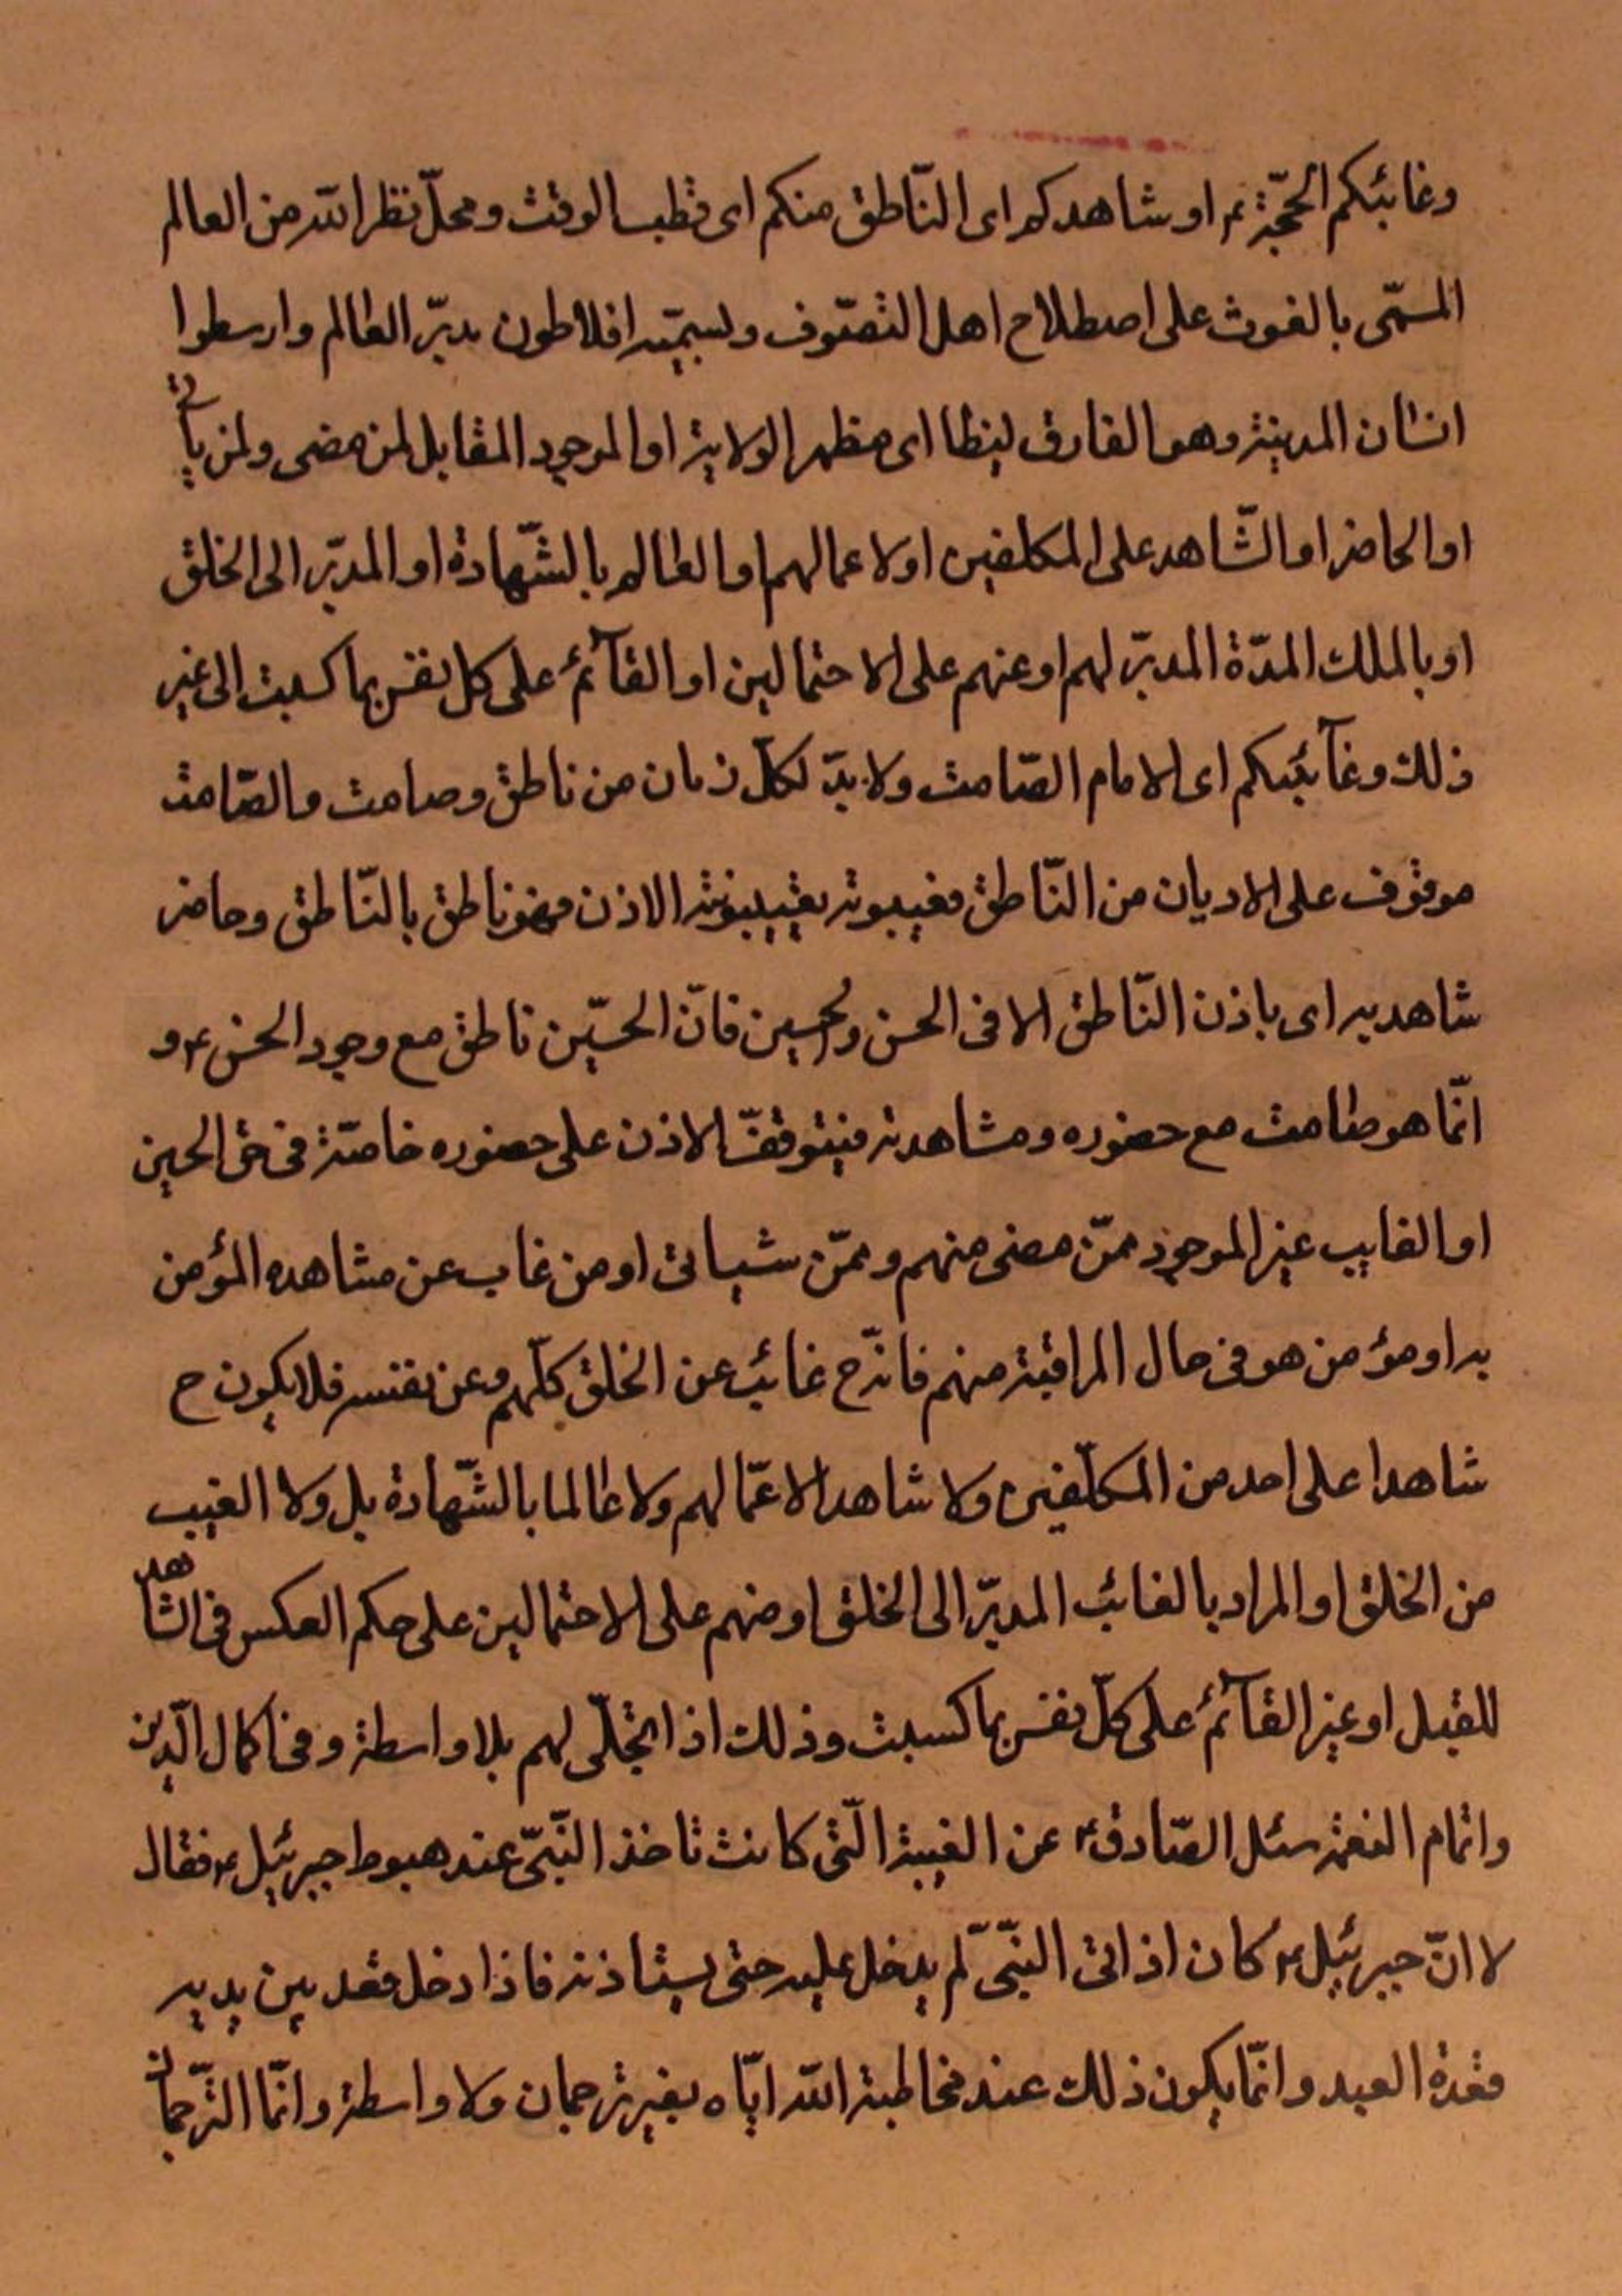 وغائبكم الحجّة ع او شاهدكم اى النّاطق منكم اى قطب الوقت ومحلّ نظر الله من العالم
المسمّى بالغوث على اصطلاح اهل التصّوف ويسمّيه افلاطون مدبّر العالم وارسطوا
انسان المدينة وهو الفارق لينظا اى مظهر الولاية او الموجود المقابل لمن مضى ولمن يأتى
او الحاضر او الشّاهد على المكلفين او لاعمالهم او العالم بالشّهادة او المدبّر الى الخلق
او بالملك المدّة المدبّر لهم او عنهم على الاحتمالين او القآئم على كل نفس بما كسبت الى غير
ذلك وغآئبكم اى الامام الصّامت ولا بدّ لكلّ زمان من ناطق وصامت والصّامت
موقوف على الاديان من النّاطق فغيبوته بغيبوبته الاذن فهو ناطق بالنّاطق وحاضر
شاهد به اى باذن النّاطق الا فى الحسن والحسين فانّ الحسّين ناطق مع وجود الحسن ع و
انّما هو صامت مع حضوره ومشاهدته فيتوقّف الاذن على حضوره خاصّة فى حق الحسين
او الغايب غير الموجود ممّن مضى منهم وممّن سيأتى او من غاب عن مشاهده المؤمن
به او مؤمن هو فى حال المراقبة منهم فانّه ح غائب عن الخلق كلّهم وعن نفسه فلا يكون ح
شاهدا على احد من المكلّفين ولا شاهدا لاعمّالهم ولا عالما بالشّهادة بل ولا الغيب
من الخلق او المراد بالغائب المدبّر الى الخلق او منهم على الاحتمالين على حكم العكس فى الشاهد
للقبل او غير القآئم على كلّ نفس بما كسبت وذلك اذا تجلّى لهم بلا واسطة وفى اكمال الدّين
واتمام النعمة سئل الصّادق ع عن الغيبة الّتى كانت تاخذ النّبىّ عند هبوط جبرئيل ع فقال
لا انّ جبرئيل ع كان اذا اتى النّبىّ لم يدخل عليه حتى يستاذنه فاذا دخل قعد بين يديه
قعدة العبد وانّما يكون ذلك عند مخاطبة الله ايّاه بغير ترجمان ولا واسطة وانّما التّرجمان